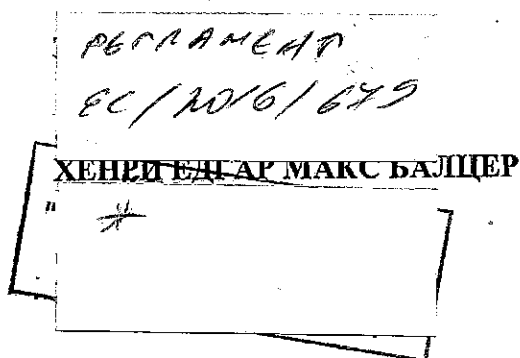 РЕГЛАМЕНТ
ЕС/2016/679
ХЕНРИ ЕДГАР МАКС БАЛЦЕР
*